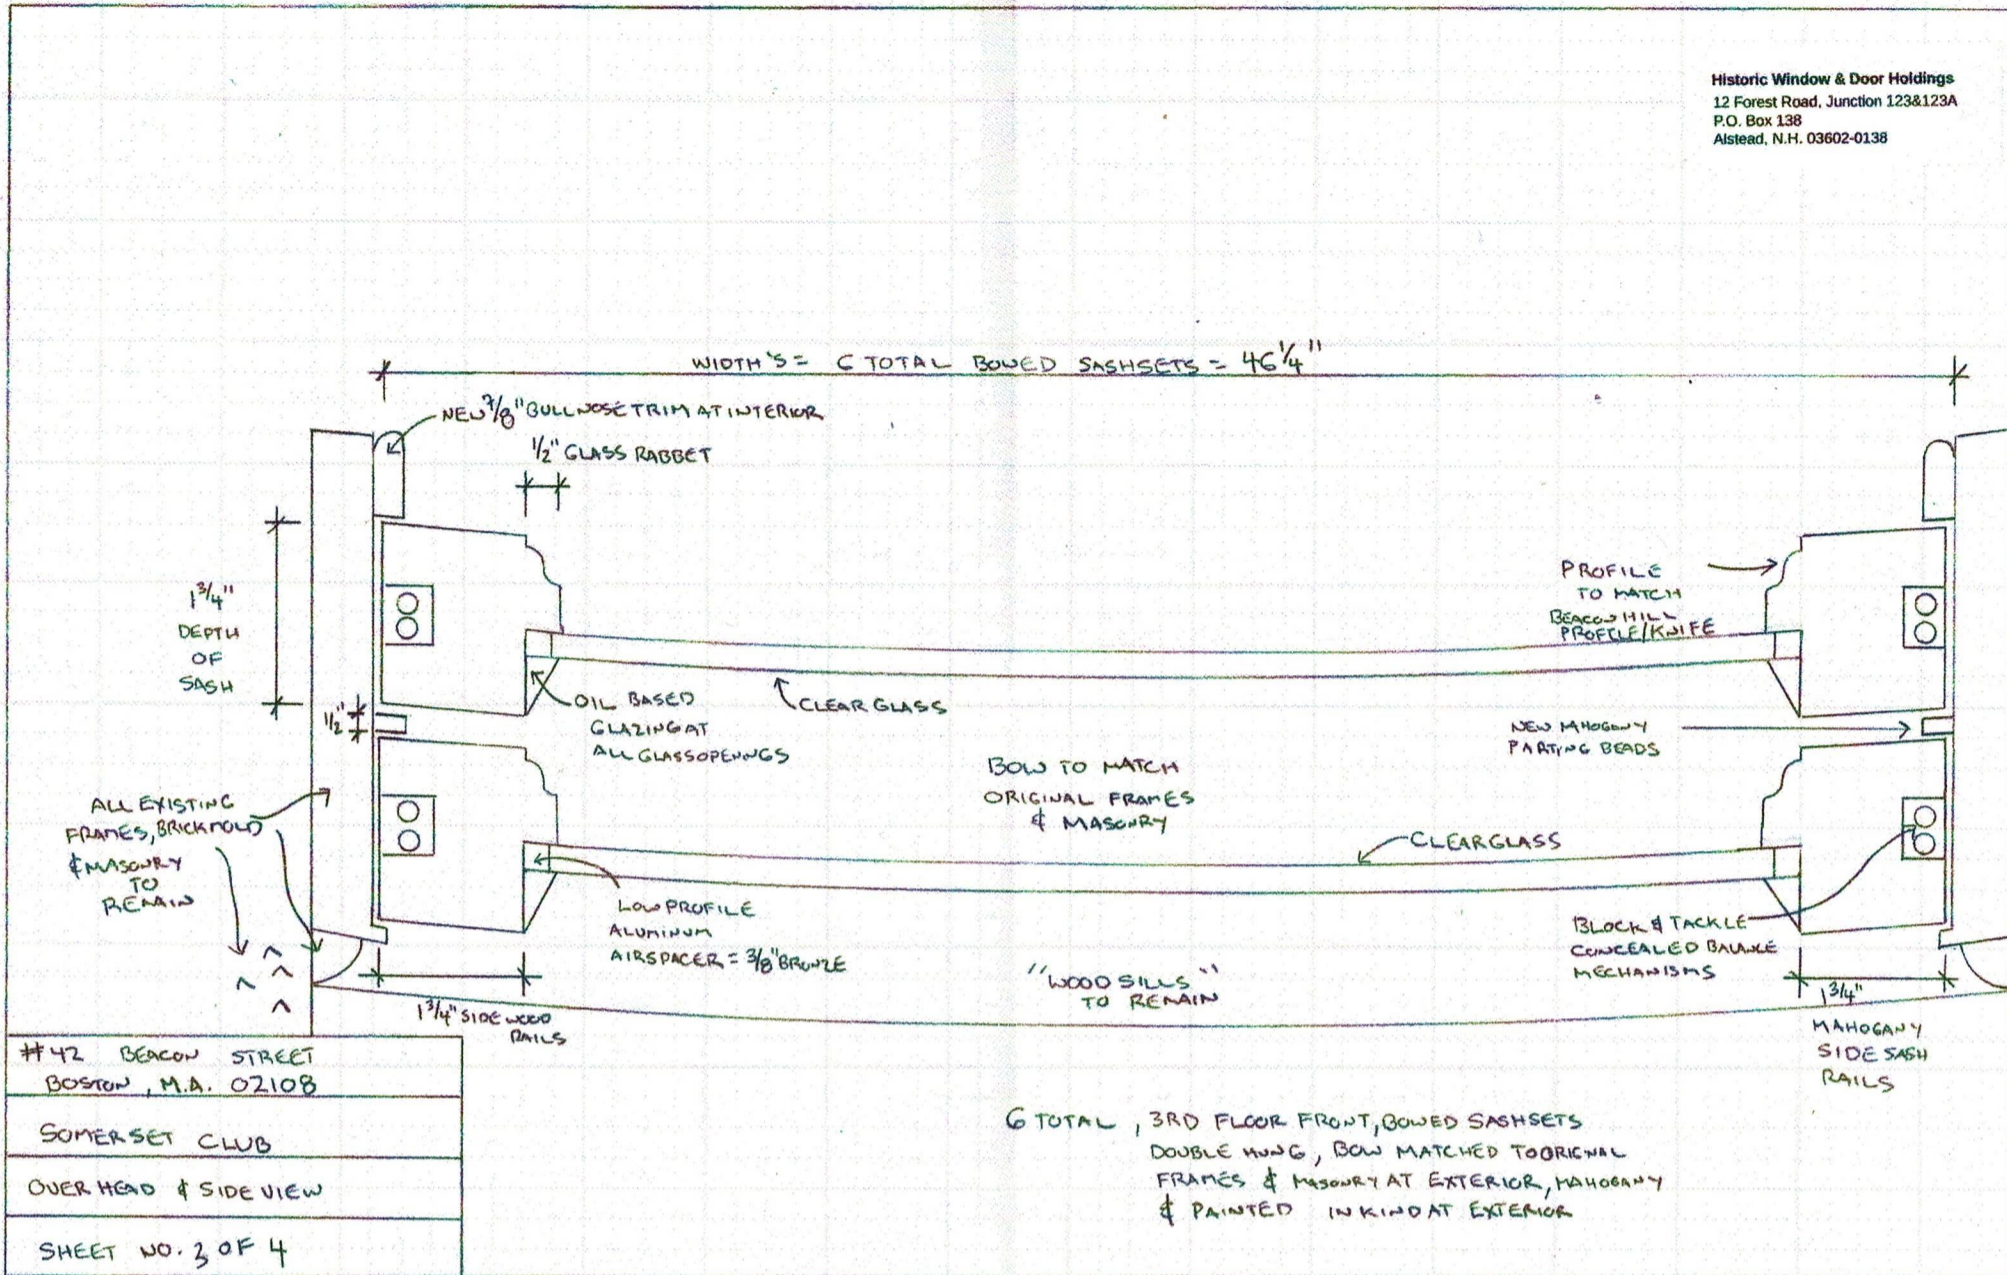 Historic Window & Door Holdings
12 Forest Road, Junction 123&123A
P.O. Box 138
Alstead, N.H. 03602-0138
WIDTH'S = 6 TOTAL BOWED SASHSETS = 46 1/4"
NEW 7/8" BULLNOSE TRIM AT INTERIOR
1/2" GLASS RABBET
1 3/4"
DEPTH
OF
SASH
PROFILE
TO MATCH
BEACON HILL
PROFILE/KNIFE
1/2"
OIL BASED
GLAZING AT
ALL GLASS OPENNGS
CLEAR GLASS
NEW MAHOGANY
PARTING BEADS
BOW TO MATCH
ORIGINAL FRAMES
& MASONRY
ALL EXISTING
FRAMES, BRICKMOLD
& MASONRY
TO
REMAIN
CLEAR GLASS
LOW PROFILE
ALUMINUM
AIRSPACER = 3/8" BRONZE
BLOCK & TACKLE
CONCEALED BALANCE
MECHANISMS
"WOOD SILLS"
TO REMAIN
1 3/4" SIDE WOOD
RAILS
1 3/4"
MAHOGANY
SIDE SASH
RAILS
#42 BEACON STREET
BOSTON, M.A. 02108
SOMERSET CLUB
OVER HEAD & SIDE VIEW
SHEET NO. 3 OF 4
6 TOTAL, 3RD FLOOR FRONT, BOWED SASHSETS
DOUBLE HUNG, BOW MATCHED TO ORIGNAL
FRAMES & MASONRY AT EXTERIOR, MAHOGANY
& PAINTED IN KIND AT EXTERIOR